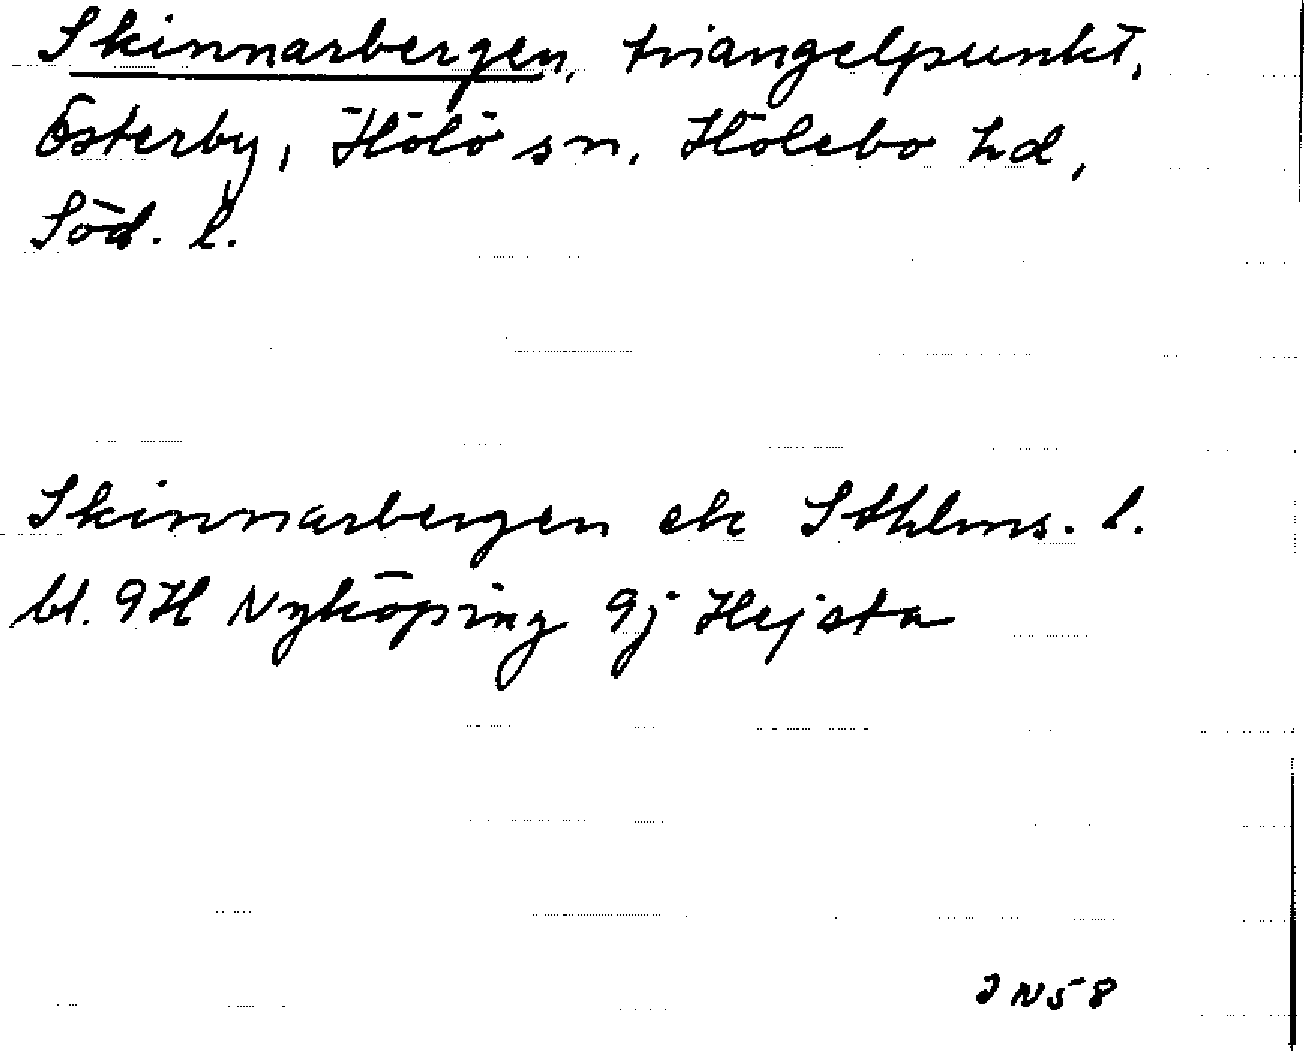 Skinnarbergen, triangelpunkt,
Österby, Hölö sn, Hölebo hd,
Söd. l.
Skinnarbergen ek Sthlms. l.
bl. 9H Nyköping 9j Hejsta
JN58